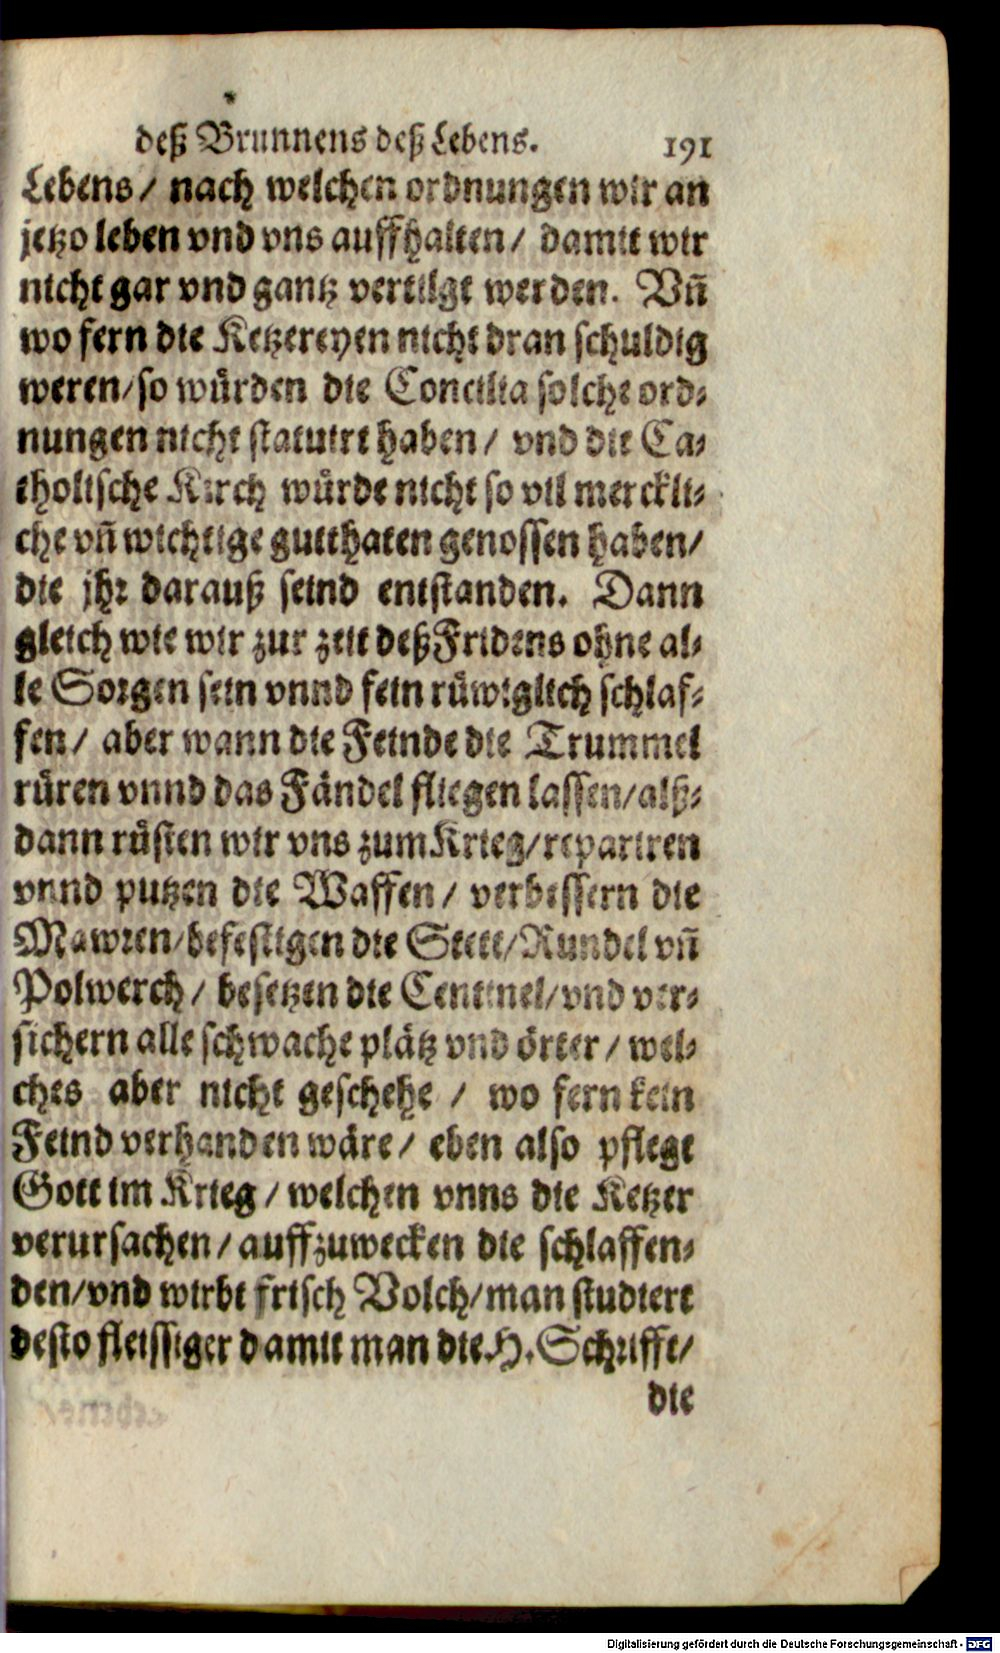 deß Brunnens deß Lebens. 191
Lebens / nach welchen ordnungen wir an
jetzo leben vnd vns auffhalten / damit wir
nicht gar vnd gantz vertilgt werden. Vñ
wo fern die Ketzereyen nicht dran schuldig
weren/so würden die Concilia solche ord-
nungen nicht statuirt haben / vnd die Ca-
tholische Kirch würde nicht so vil merckli-
che vñ wichtige gutthaten genossen haben/
die jhr darauß seind entstanden. Dann
gleich wie wir zur zeit deß Fridens ohne al-
le Sorgen sein vnnd fein rüwiglich schlaf-
fen / aber wann die Feinde die Trummel
rüren vnnd das Fändel fliegen lassen/alß-
dann rüsten wir vns zum Krieg/repariren
vnnd putzen die Waffen / verbessern die
Mawren/befestigen die Stett/Rundel vñ
Polwerch / besetzen die Centinel/vnd ver-
sichern alle schwache plätz vnd örter / wel-
ches aber nicht geschehe / wo fern kein
Feind verhanden wäre / eben also pflegt
Gott im Krieg / welchen vnns die Ketzer
verursachen / auffzuwecken die schlaffen-
den/vnd wirbt frisch Volch/man studiert
desto fleissiger damit man die H. Schrifft/
die
Digitalisierung gefördert durch die Deutsche Forschungsgemeinschaft - DFG